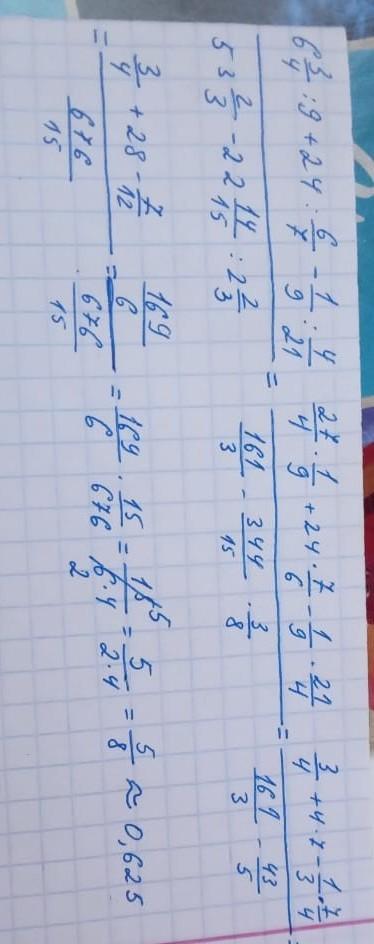 (6 3/4 : 9 + 24 : 6/7 - 1/9 : 4/21) / (53 2/3 - 22 14/15 : 2 2/3) = (27/4 · 1/9 + 24 · 7/6 - 1/9 · 21/4) / (161/3 - 344/15 · 3/8) = (3/4 + 4 · 7 - 1/3 · 7/4) / (161/3 - 43/5) =
= (3/4 + 28 - 7/12) / (676/15) = (169/6) / (676/15) = 169/6 · 15/676 = 15 5 / 6 · 4 2 = 5 / 2 · 4 = 5/8 ≈ 0,625